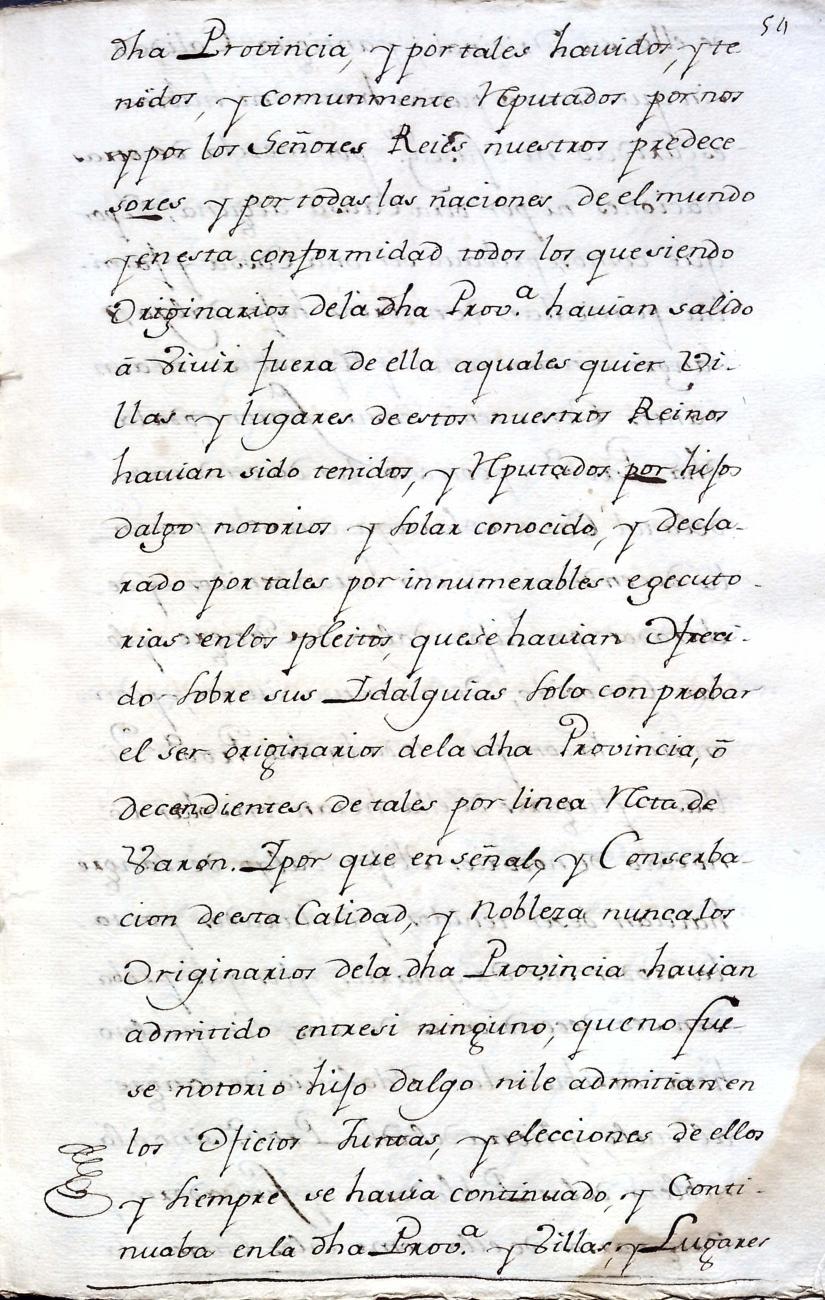 54
dha Provincia, y por tales havidos, y te
nidos, y Comunmente Reputados por nos
y por los Señores Reies nuestros predece
sores y por todas las naciones de el mundo
y en esta conformidad todos los que siendo
Originarios de la dha Prov.ª havian salido
á Vivir fuera de ella a quales quier Vi-
llas y lugares de estos nuestros Reinos
havian sido tenidos, y Reputados por hijos
dalgo notorios y Solar conocido, y decla-
rado por tales por innumerables egecuto-
rias en los pleitos, que se havian Ofreci-
do Sobre sus Idalguias, Solo con probar
el ser originarios de la dha Provincia, ó
decendientes de tales por linea Recta de
Varon. I por que en señal, y Conserba-
cion de esta Calidad, y Nobleza nunca los
Originarios de la dha Provincia havian
admitido entre si ninguno, que no fue-
se notorio hijo dalgo ni le admitian en
los Oficios Juntas, y elecciones de ellos
y Siempre se havia continuado, y Conti-
nuaba en la dha Prov.ª y Villas, y Lugares